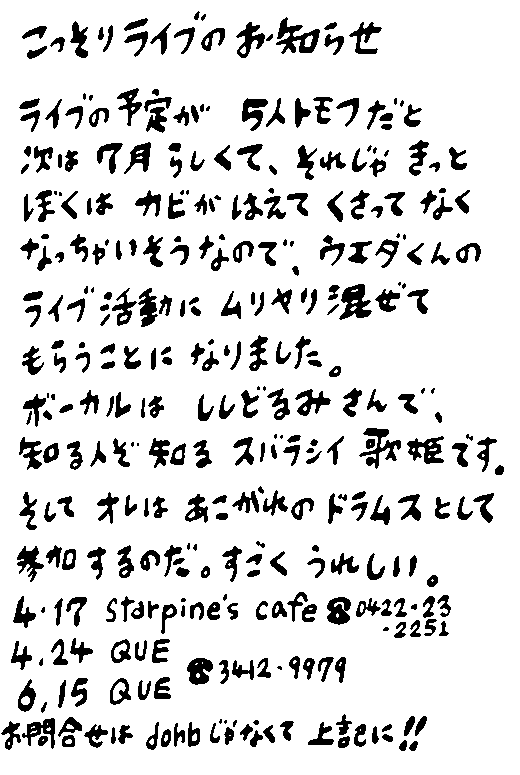 こっそりライブのお知らせ
ライブの予定が 5人トモフだと
次は 7月らしくて、それじゃ きっと
ぼくは カビが はえて くさって なく
なっちゃいそうなので、ウエダくんの
ライブ活動に ムリヤリ混ぜて
もらうことに なりました。
ボーカルは ししどるみ さんで、
知る人ぞ 知る スバラシイ 歌姫です。
そして オレは あこがれの ドラムスとして
参加するのだ。すごく うれしい。
4.17 Starpine's cafe ☎0422・23・2251
4.24 QUE
6.15 QUE ☎3412・9979
お問合せは dohbじゃなくて 上記に!!